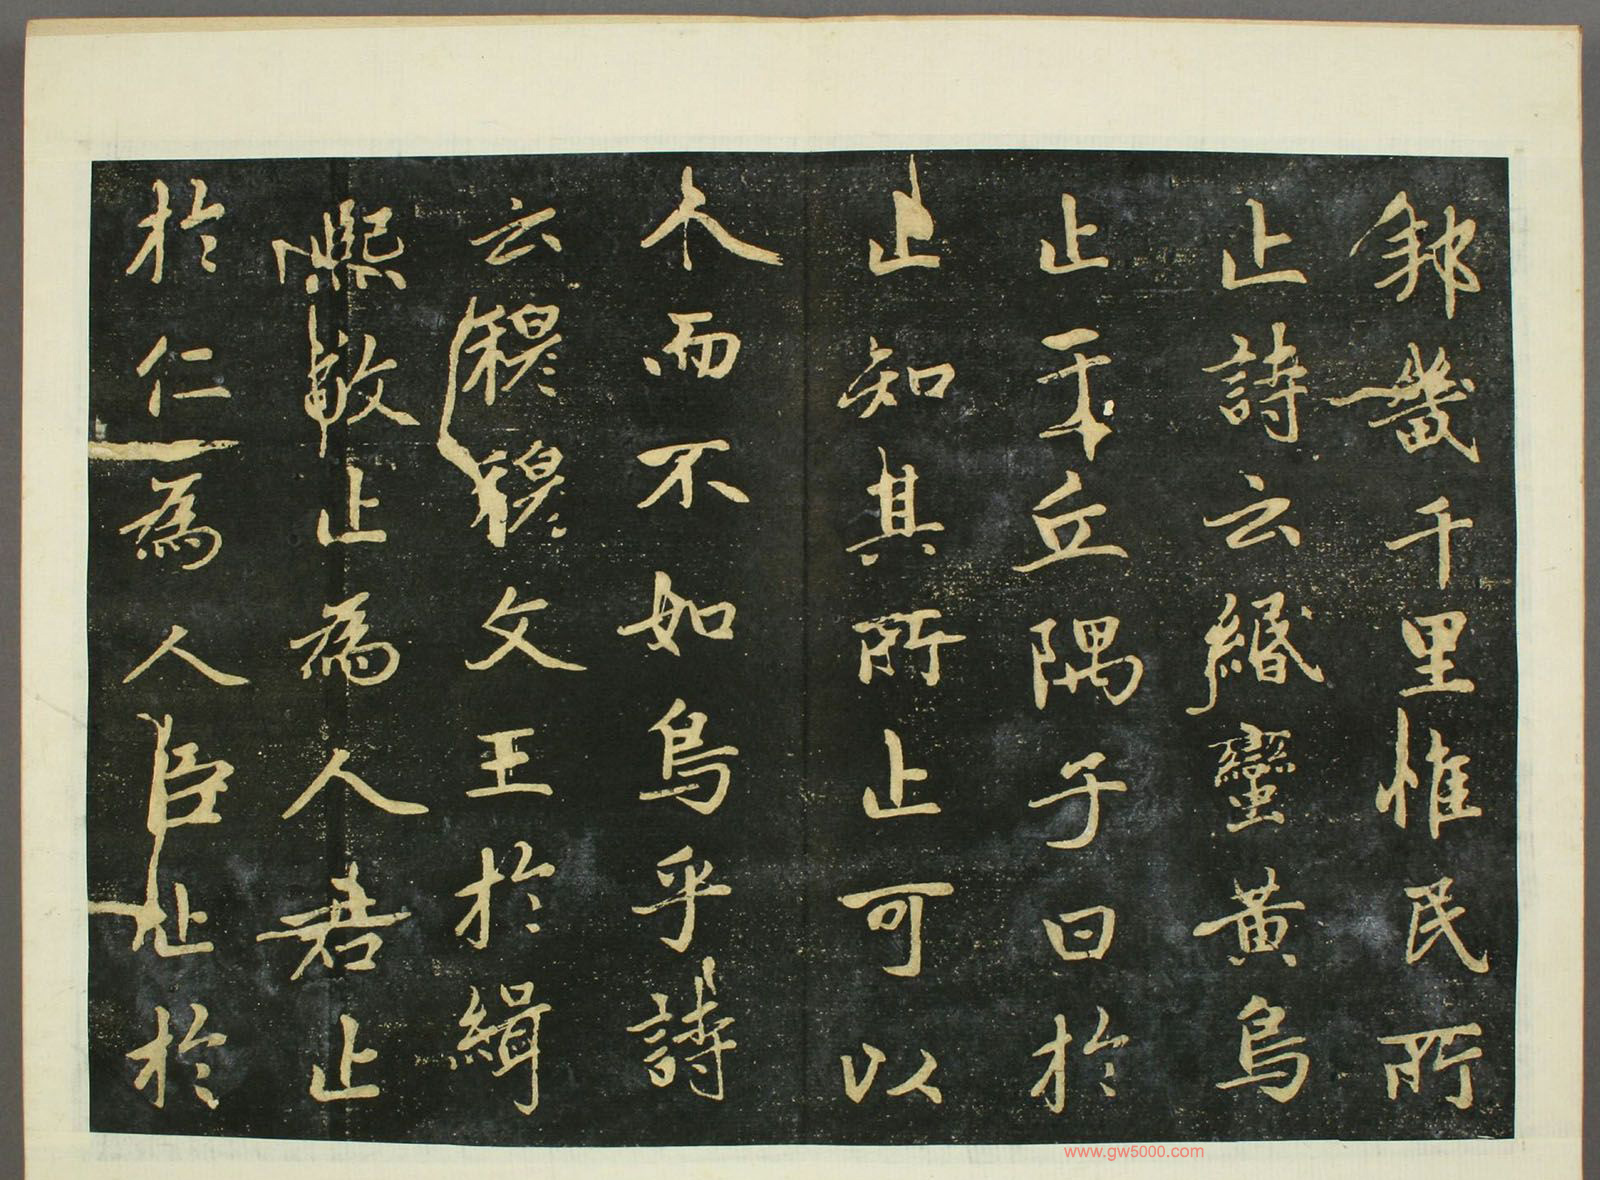 邦畿千里惟民所
止詩云緡蠻黃鳥
止于丘隅子曰於
止知其所止可以
人而不如鳥乎詩
云穆穆文王於緝
熙敬止為人君止
於仁為人臣止於
www.gw5000.com